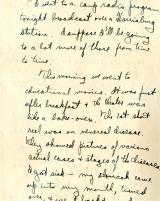 I went to a camp radio program
tonight broadcast over a Harrisburg
station. Suppose I'll be going
to a lot more of these from time
to time.
This morning we went to
educational movies. It was just
after breakfast & the theatre was
like a bake-oven. The last short
reel was on venereal disease.
They showed pictures of various
actual cases & stages of the diseases
I got sick — my stomach came
up into my mouth, turned
over, &